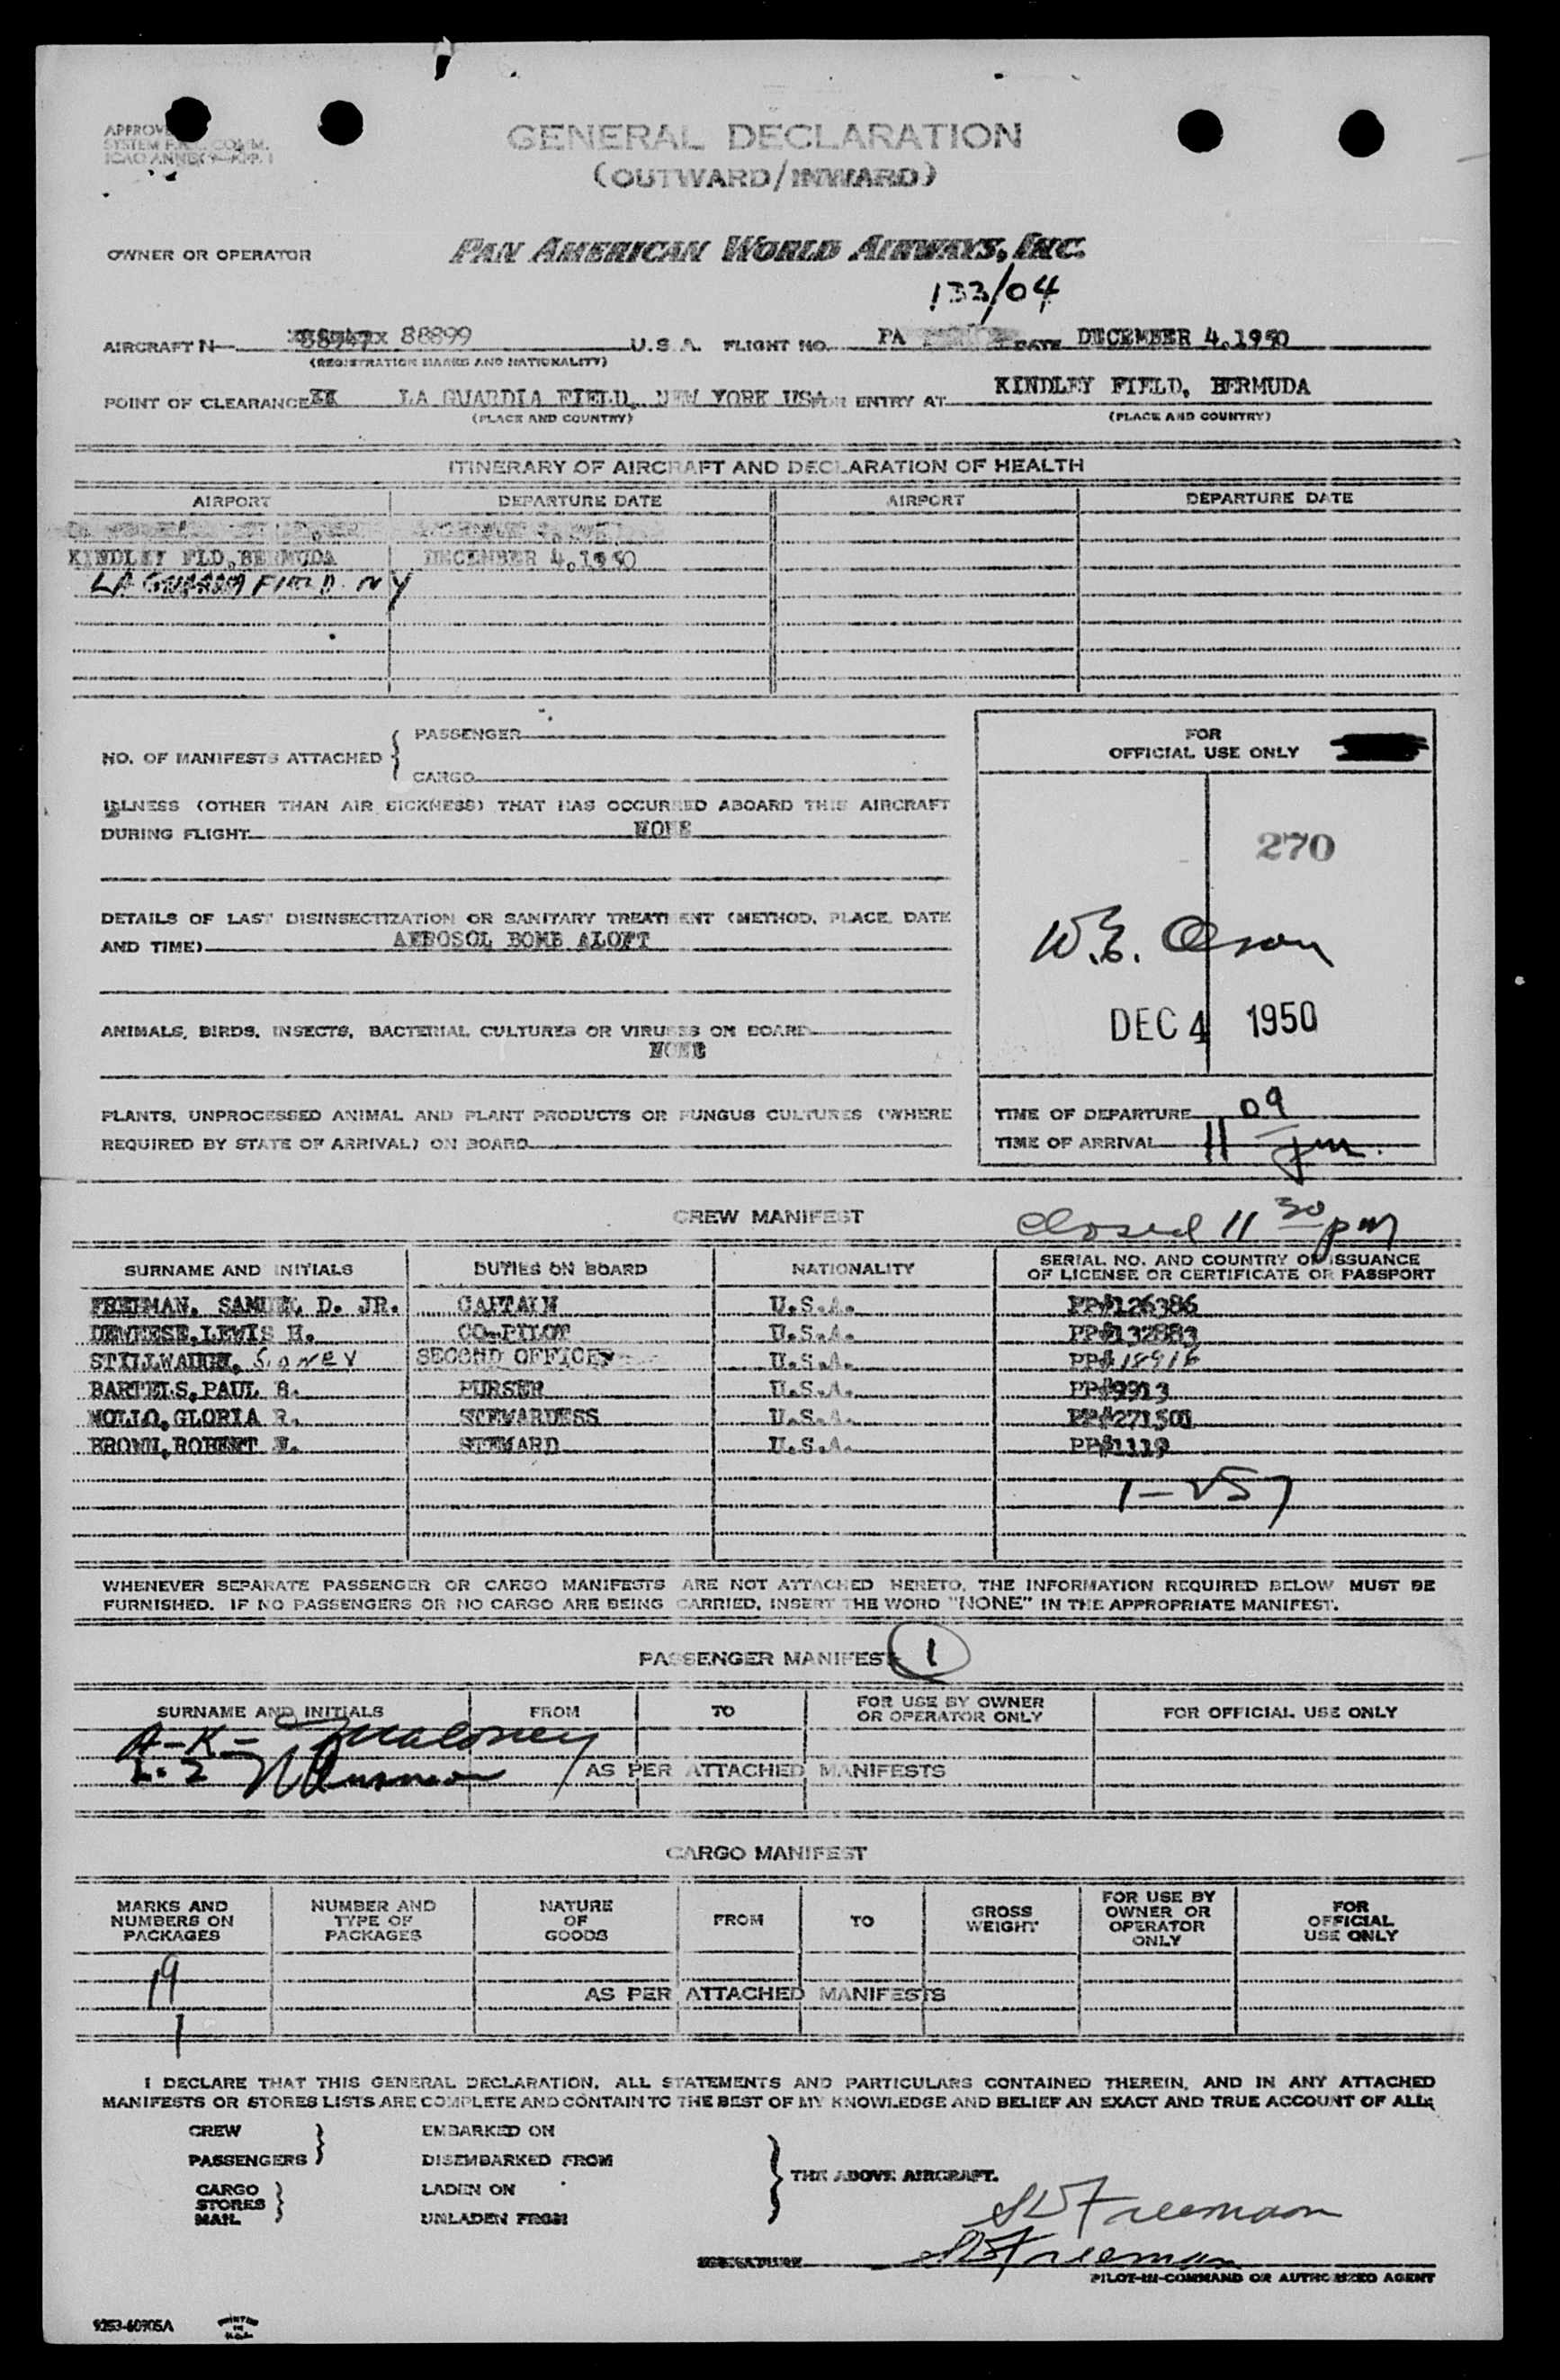 GENERAL DECLARATION
(OUTWARD/INWARD)
OWNER OR OPERATOR PAN AMERICAN WORLD AIRWAYS, INC.
133/04
AIRCRAFT N 88899 U.S.A. FLIGHT NO. PA DATE DECEMBER 4,1950
(REGISTRATION MARKS AND NATIONALITY)
POINT OF CLEARANCE XX LA GUARDIA FIELD, NEW YORK USA FOR ENTRY AT KINDLEY FIELD, BERMUDA
(PLACE AND COUNTRY) (PLACE AND COUNTRY)
ITINERARY OF AIRCRAFT AND DECLARATION OF HEALTH
AIRPORT DEPARTURE DATE AIRPORT DEPARTURE DATE
KINDLEY FLD,BERMUDA DECEMBER 4,1950
LA GUARDIA FIELD NY
PASSENGER
NO. OF MANIFESTS ATTACHED
CARGO
ILLNESS (OTHER THAN AIR SICKNESS) THAT HAS OCCURRED ABOARD THIS AIRCRAFT
DURING FLIGHT NONE
DETAILS OF LAST DISINSECTIZATION OR SANITARY TREATMENT (METHOD, PLACE, DATE
AND TIME) AEROSOL BOMB ALOFT
ANIMALS, BIRDS, INSECTS, BACTERIAL CULTURES OR VIRUSES ON BOARD
NONE
PLANTS, UNPROCESSED ANIMAL AND PLANT PRODUCTS OR FUNGUS CULTURES (WHERE
REQUIRED BY STATE OF ARRIVAL) ON BOARD
FOR
OFFICIAL USE ONLY
270
W.E. Olson
DEC 4 1950
TIME OF DEPARTURE
TIME OF ARRIVAL 11 09 pm.
CREW MANIFEST Closed 11 30 pm
SURNAME AND INITIALS DUTIES ON BOARD NATIONALITY SERIAL NO. AND COUNTRY OF ISSUANCE
OF LICENSE OR CERTIFICATE OR PASSPORT
FREEMAN, SAMUEL D. JR. CAPTAIN U.S.A. PP#126386
DEWEESE,LEWIS H. CO-PILOT U.S.A. PP#132883
STILLWAUGH, SECOND OFFICER U.S.A. PP#18916
BARTELS,PAUL PURSER U.S.A. PP#9913
MOLLO,GLORIA R. STEWARDESS U.S.A. PP#271501
BROWN,ROBERT STEWARD U.S.A. PP#1119
WHENEVER SEPARATE PASSENGER OR CARGO MANIFESTS ARE NOT ATTACHED HERETO, THE INFORMATION REQUIRED BELOW MUST BE
FURNISHED. IF NO PASSENGERS OR NO CARGO ARE BEING CARRIED, INSERT THE WORD "NONE" IN THE APPROPRIATE MANIFEST.
PASSENGER MANIFEST 1
SURNAME AND INITIALS FROM TO FOR USE BY OWNER
OR OPERATOR ONLY FOR OFFICIAL USE ONLY
A-K- Maloney
L-Z
AS PER ATTACHED MANIFESTS
CARGO MANIFEST
MARKS AND
NUMBERS ON
PACKAGES
NUMBER AND
TYPE OF
PACKAGES
NATURE
OF
GOODS
FROM
TO
GROSS
WEIGHT
FOR USE BY
OWNER OR
OPERATOR
ONLY
FOR
OFFICIAL
USE ONLY
19
AS PER ATTACHED MANIFESTS
1
I DECLARE THAT THIS GENERAL DECLARATION, ALL STATEMENTS AND PARTICULARS CONTAINED THEREIN, AND IN ANY ATTACHED
MANIFESTS OR STORES LISTS ARE COMPLETE AND CONTAIN TO THE BEST OF MY KNOWLEDGE AND BELIEF AN EXACT AND TRUE ACCOUNT OF ALL:
CREW EMBARKED ON
PASSENGERS DISEMBARKED FROM
THE ABOVE AIRCRAFT.
CARGO LADEN ON
STORES
MAIL UNLADEN FROM
SD Freeman
SIGNATURE SD Freeman
PILOT-IN-COMMAND OR AUTHORIZED AGENT
9253-60905A PRINTED
IN
U.S.A.